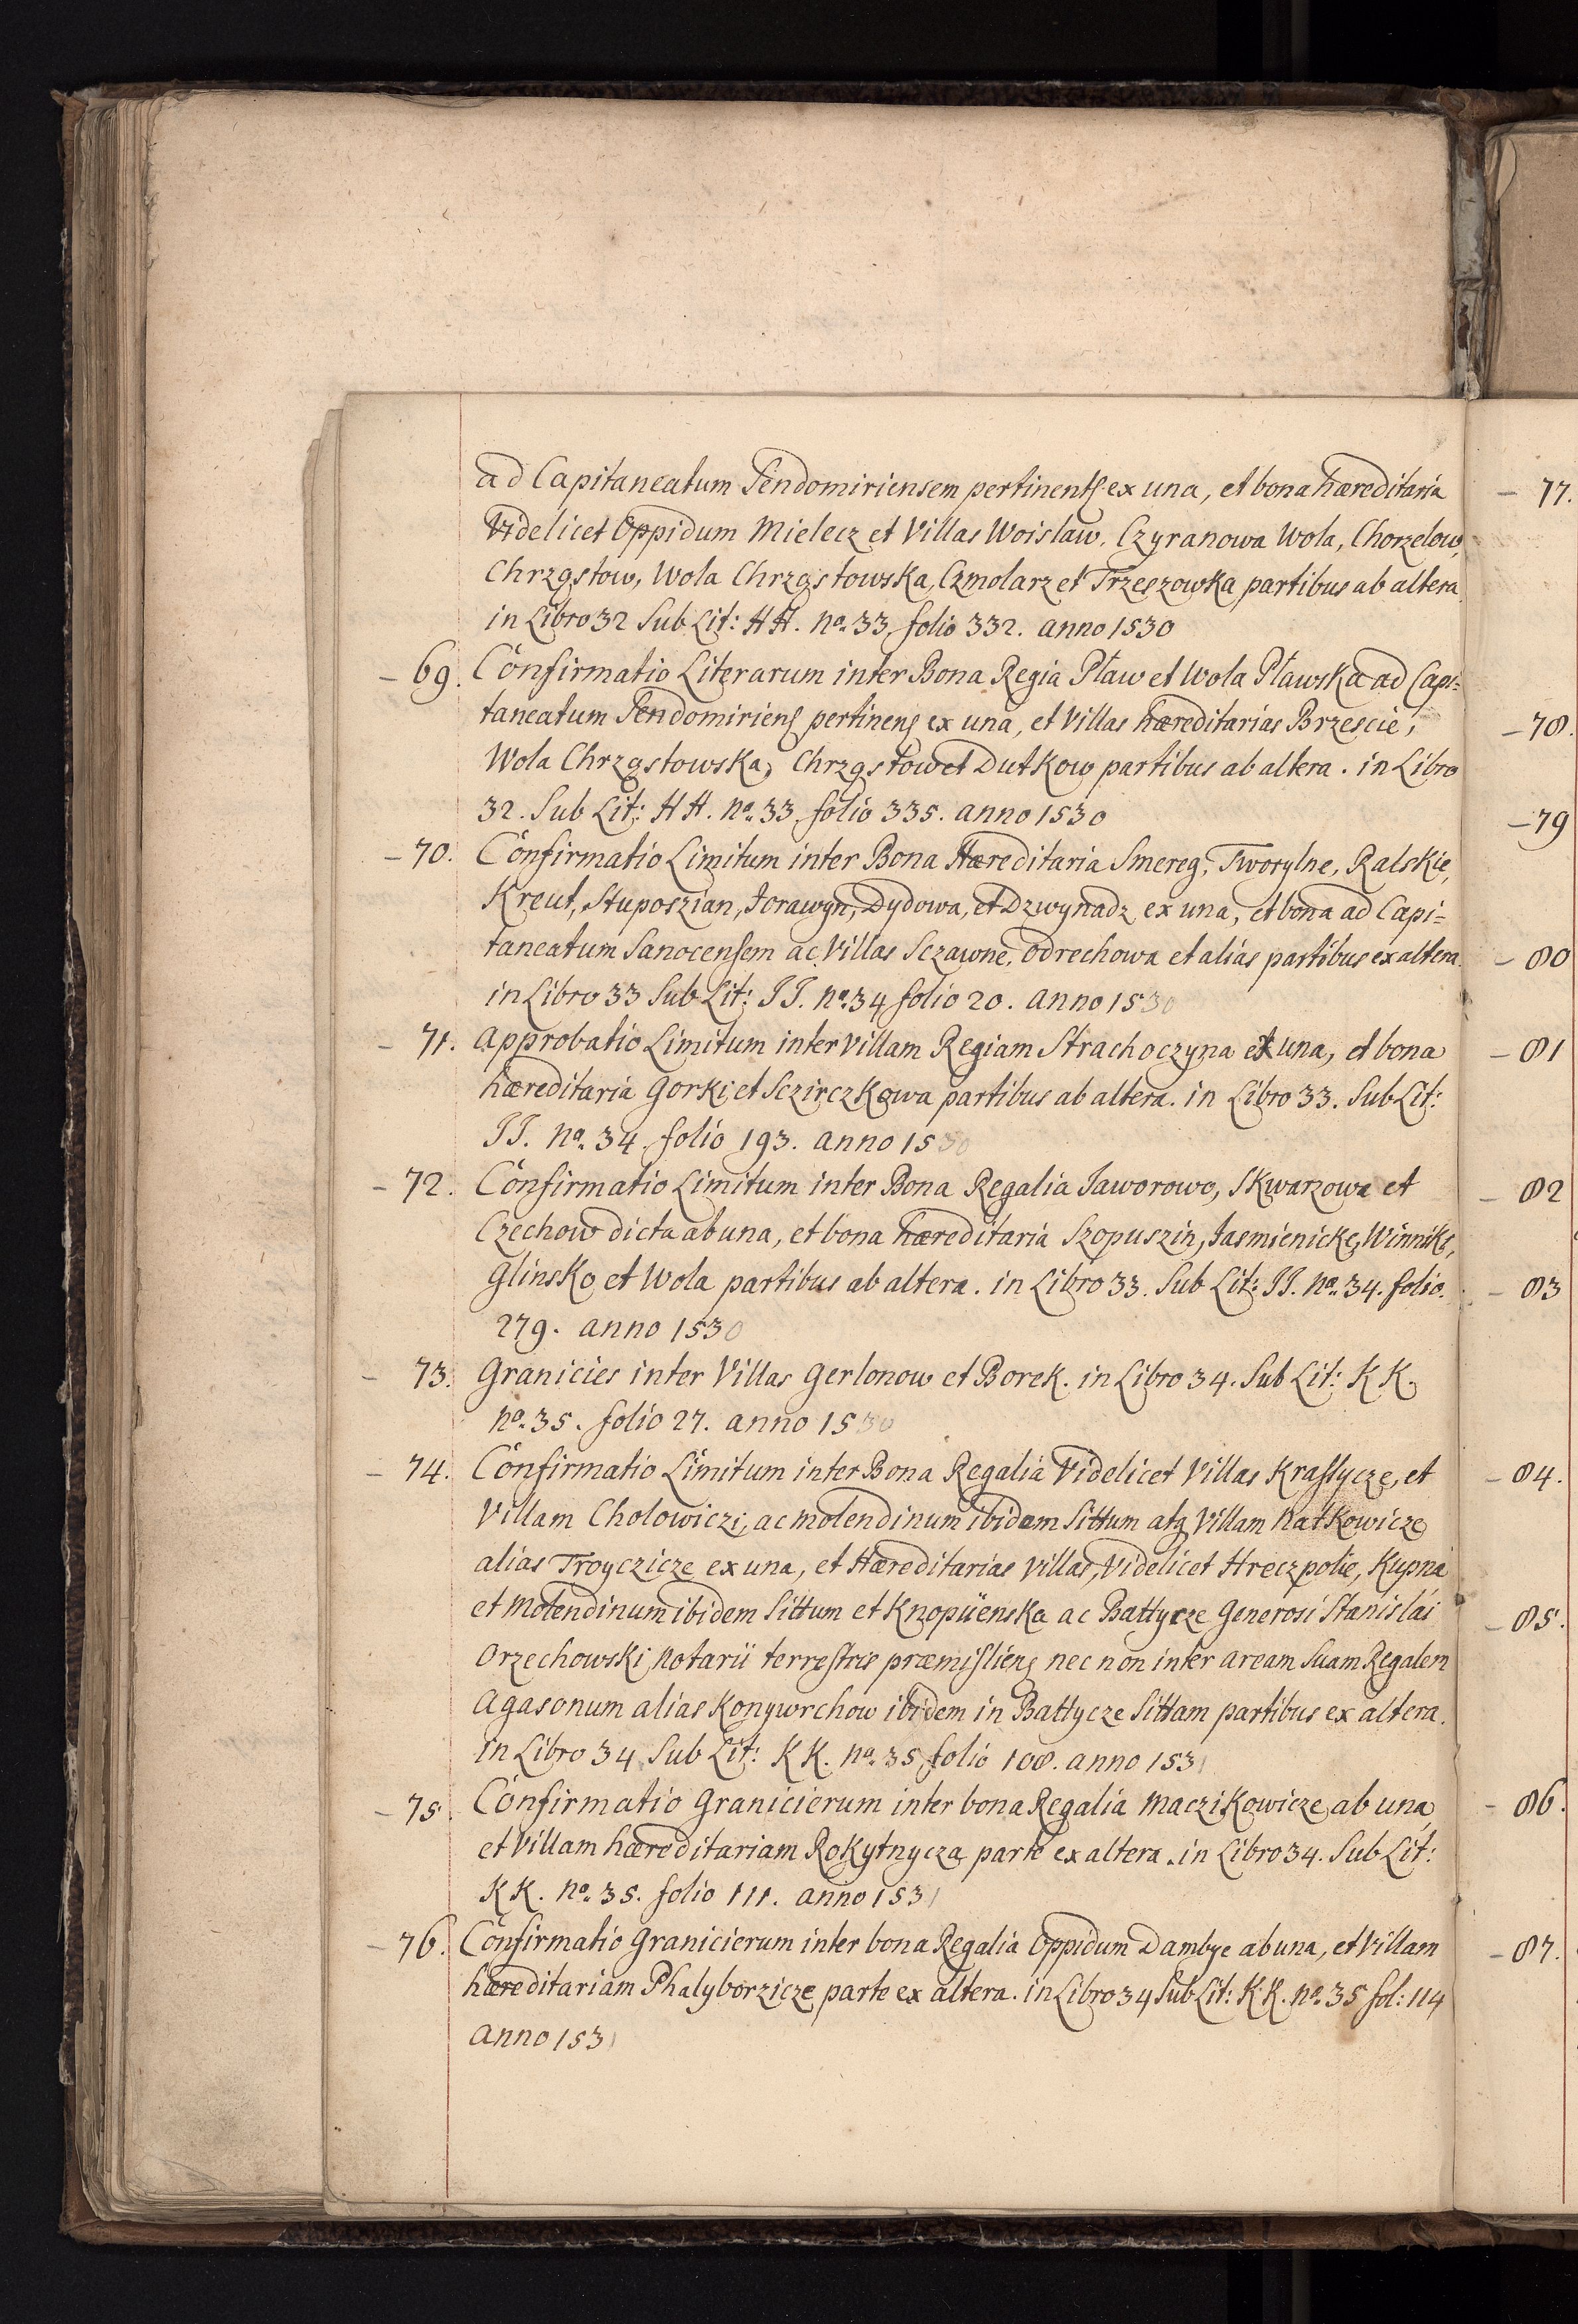 ad Capitaneatum Sendomiriensem pertinentẽ ex una, et bona hæreditaria
Videlicet Oppidum Mielecz et Villas Woislaw, Czyranowa Wola, Chorzelow,
Chrzgstow, Wola Chrzgstowska, Czmolarz et Trzeszowka partibus ab altera
in Libro 32 Sub Lit: HH. no. 33 folio 332. anno 1530
- 69. Confirmatio Literarum inter Bona Regia Pław et Wola Pławska ad Capi=
taneatum Sendomiriens pertinens ex una, et Villas hæreditarias Brzescie,
Wola Chrzgstowska, Chrzgstow et Dutkow partibus ab altera. in Libro
32. Sub Lit: HH. no. 33 folio 335. anno 1530
- 70. Confirmatio Limitum inter Bona Hæreditaria Smereg, Tworylne, Ralskie,
Kreut, Stuposzian, Jorawyn, Dydowa, et Dzwynadz ex una, et bona ad Capi=
taneatum Sanocensem ac Villas Sczawne, Odrechowa et alias partibus ex altera.
in Libro 33 Sub Lit: JJ. no. 34 folio 20. anno 1530
- 71. Approbatio Limitum inter Villam Regiam Strachoczyna ex una, et bona
hæreditaria Gorki, et Sczirczkowa partibus ab altera. in Libro 33. Sub Lit:
JJ. no. 34. folio 193. anno 1530
- 72. Confirmatio Limitum inter Bona Regalia Jaworowo, Skwarzowa et
Czechow dicta ab una, et bona hæreditaria Szopuszin, Jasmienicke, Winniki,
Glinsko et Wola partibus ab altera. in Libro 33. Sub Lit: JJ. no. 34. folio.
279. anno 1530
- 73. Granicies inter Villas Gerlonow et Borek. in Libro 34. Sub Lit: KK.
no. 35. folio 27. anno 1530
- 74. Confirmatio Limitum inter Bona Regalia Videlicet Villas Krassycze, et
Villam Cholowiczi, ac molendinum ibidem Sittum atq Villam Natkowicze
alias Troyczicze ex una, et Hæreditarias Villas, Videlicet Hreczpolie, Kupna
et Molendinum ibidem Sittum et Knopüenska ac Battycze Generosi Stanislai
Orzechowski, Notarii terrestris præmisliens nec non inter aream Suam Regalem
Agasonum alias Konywrchow ibidem in Battycze Sittam partibus ex altera.
in Libro 34 Sub Lit: KK. no. 35 folio 108. anno 1531
- 75. Confirmatio Granicierum inter bona Regalia Maczikowicze, ab una,
et Villam hæreditariam Rokytnycza parte ex altera. in Libro 34. Sub Lit:
KK. no. 35. folio 111. anno 1531
- 76. Confirmatio Granicierum inter bona Regalia Oppidum Dambye ab una, et Villam
hæreditariam Phalyborzicze parte ex altera. in Libro 34 Sub Lit: KK. no. 35 fol: 114
anno 1531
- 77.
- 78.
- 79
- 80
- 81
- 82
- 83
- 84.
- 85.
- 86.
- 87.